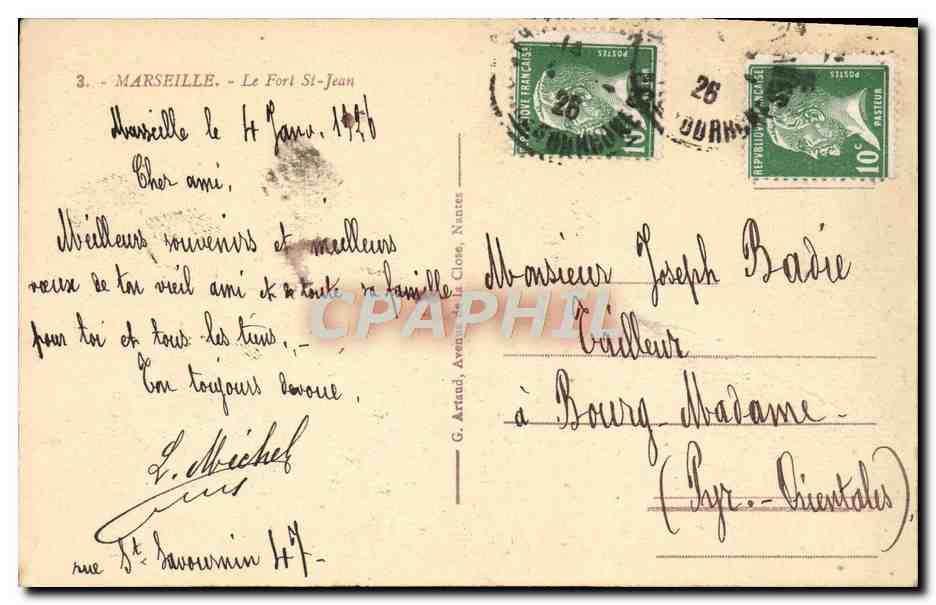 3. - MARSEILLE. - Le Fort St-Jean
Marseille le 4 Janv. 1926
Cher ami,
Meilleurs souvenirs et meilleurs
vœux de ton vieil ami et de toute sa famille
pour toi et tous les tiens. -
Ton toujours dévoué.
L. Michel
rue St. Savournin 47 -
G. Artaud, Avenue de la Close, Nantes
RÉPUBLIQUE FRANÇAISE
POSTES
PASTEUR
10c
26
REPUBLIQUE FRANÇAISE
POSTES
PASTEUR
10c
26
Monsieur Joseph Badie
Tailleur
à Bourg-Madame -
(Pyr. - Orientales),
CPAPHIL